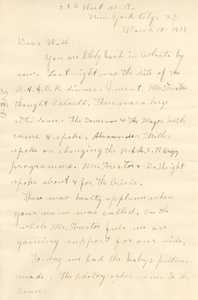 West St.
New York City, N.Y.
March 18
Dear Walter
You are likely back in Atlanta by
now. Last night was the date of the
N.A.A.C.P. dinner. I went. Mr. Streator
thought I should. There was a large
attendance. The Governor & the Mayor both
came & spoke. Alexander Miller
spoke on changing the N.A.A.C.P.
programme. Mr. Streator & Du
spoke about & for the Crisis.
There was hearty applause when
your name was called. On the
whole Mr. Streator feels we are
gaining support for our side.
To-day we had the baby's picture
made. The photographer came to the
house.